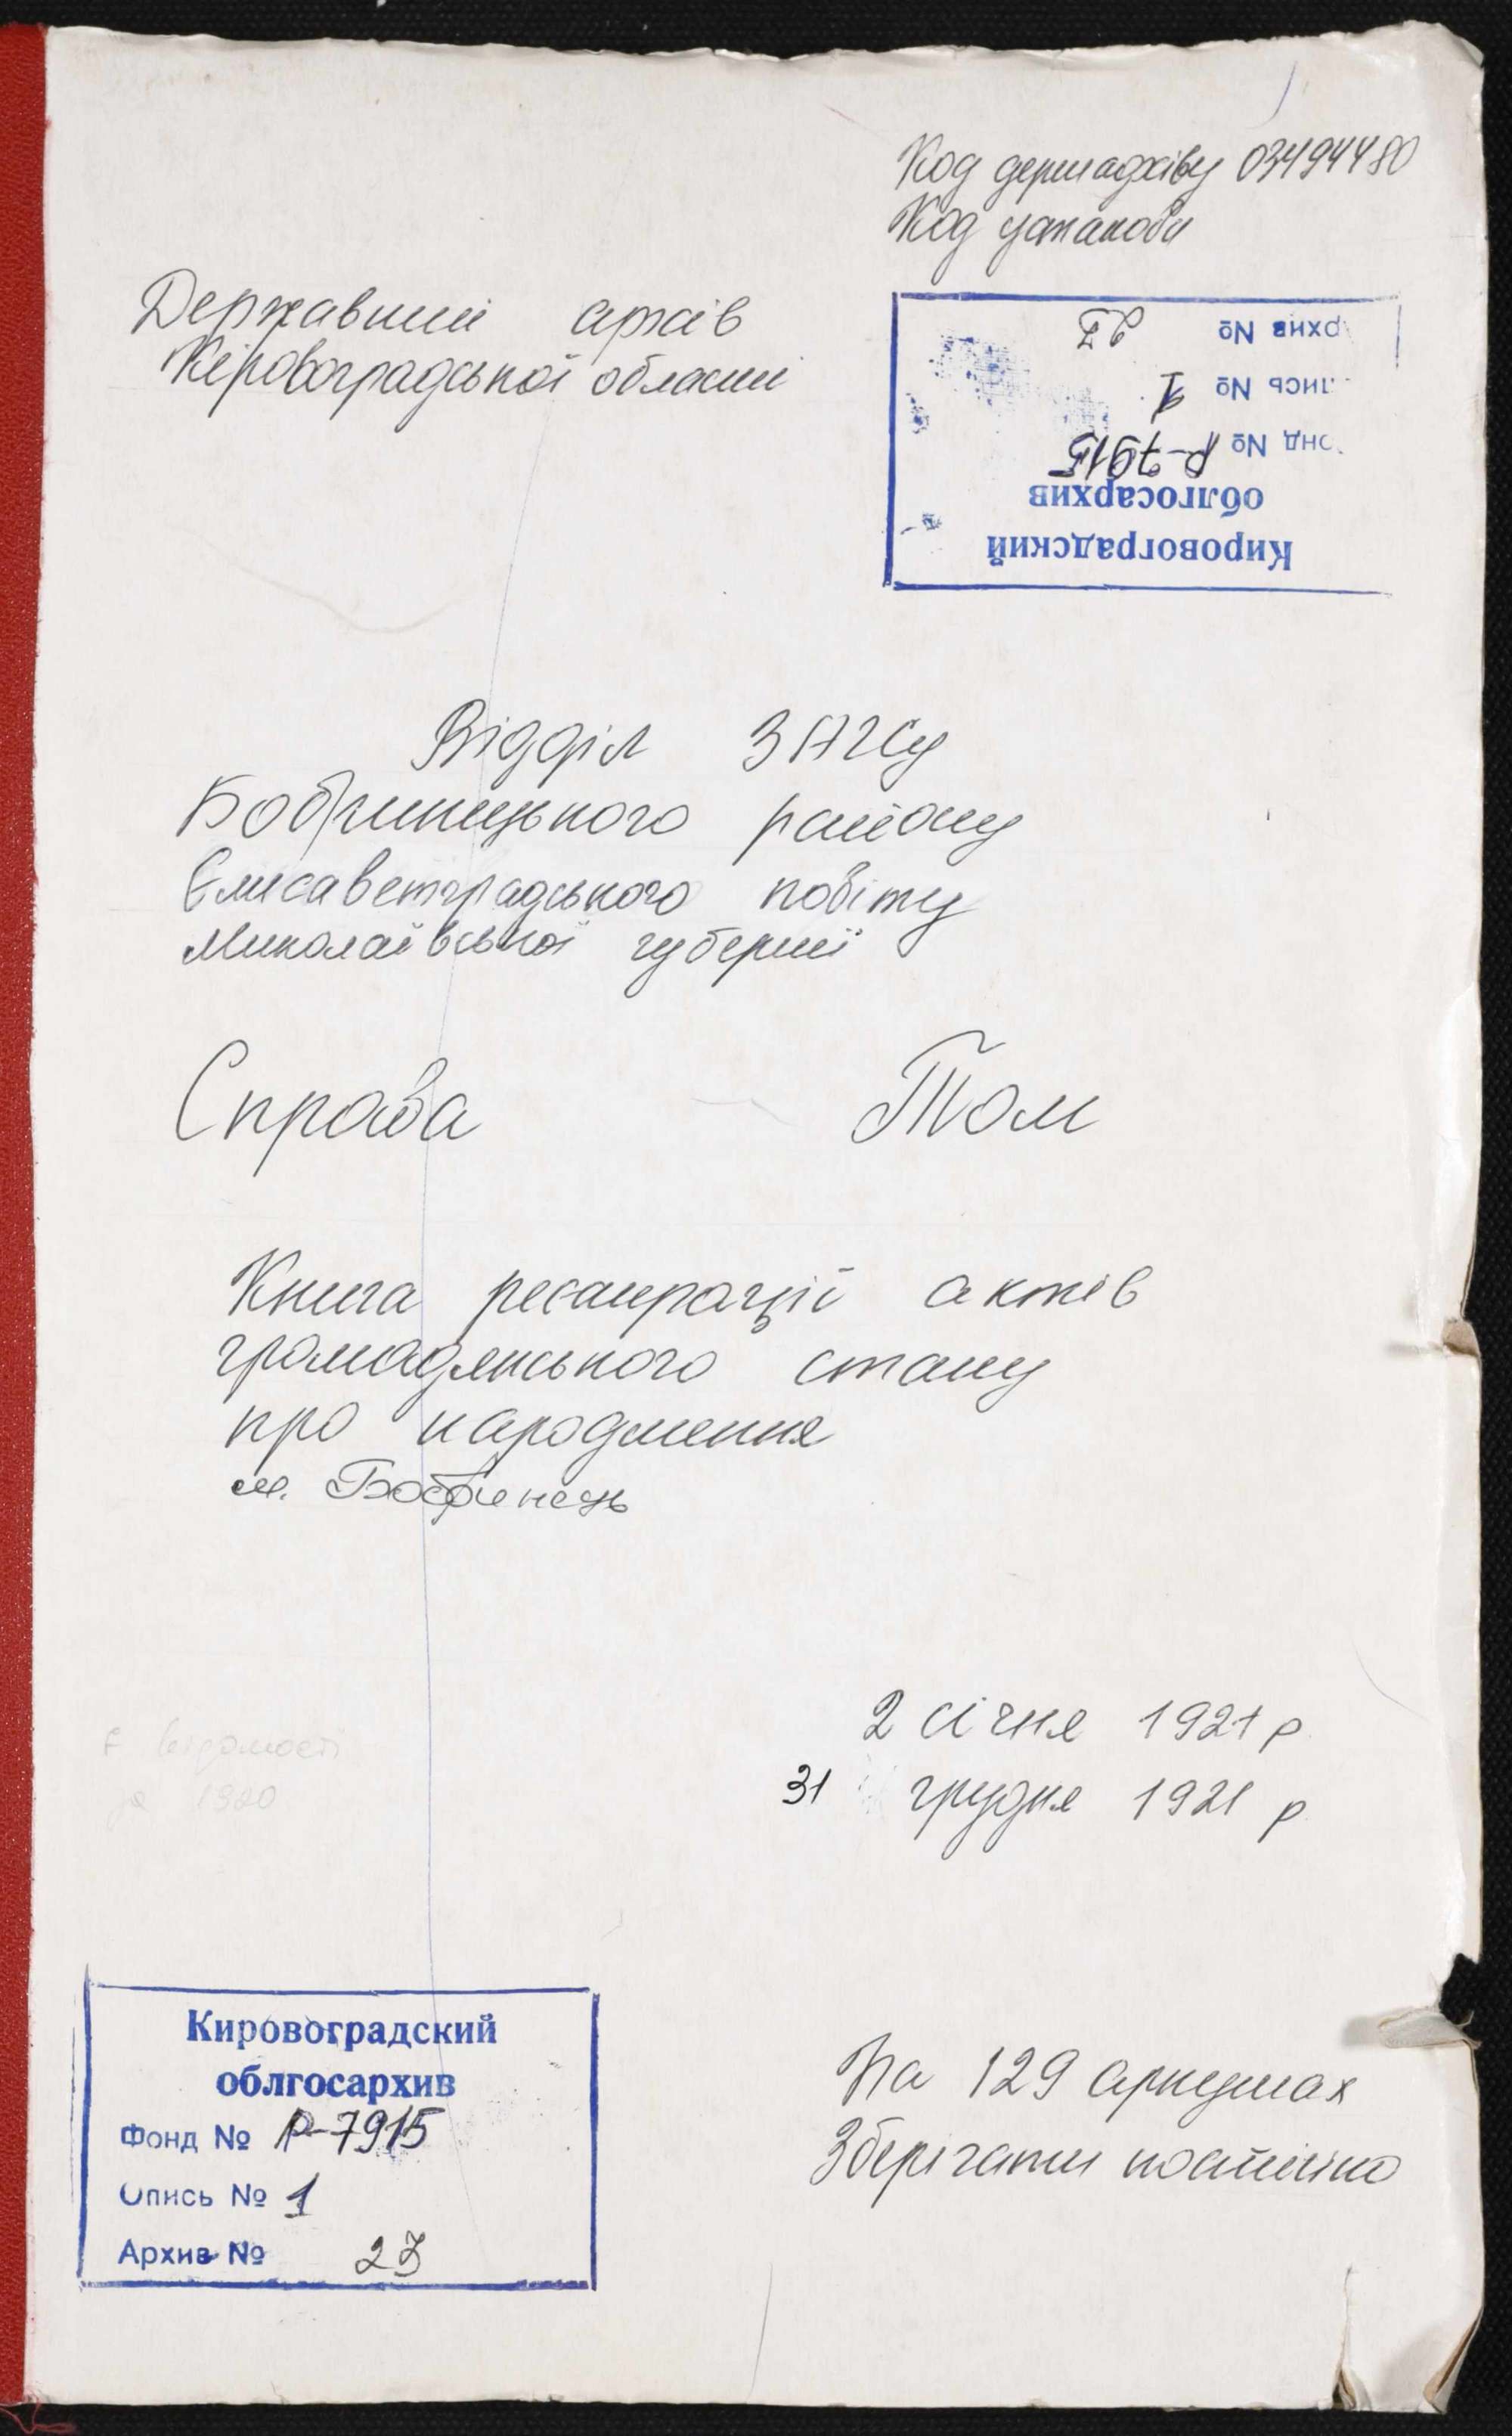 Код держархіву 03494480
Код установи
Державний архів
Кіровоградської області
Кировоградский
облгосархив
онд № Р-7915
лись № 1
рхив № 27
Відділ ЗАГСу
Бобринецького району
Єлисаветградського повіту
Миколаївської губернії
Справа Том
Книга реєстрації актів
громадянського стану
про народження
м. Бобринець
2 січня 1921 р
31 грудня 1921 р
є відомості
за 1920
Кировоградский
облгосархив
Фонд № Р-7915
Опись № 1
Архив № 27
На 129 аркушах
Зберігати постійно